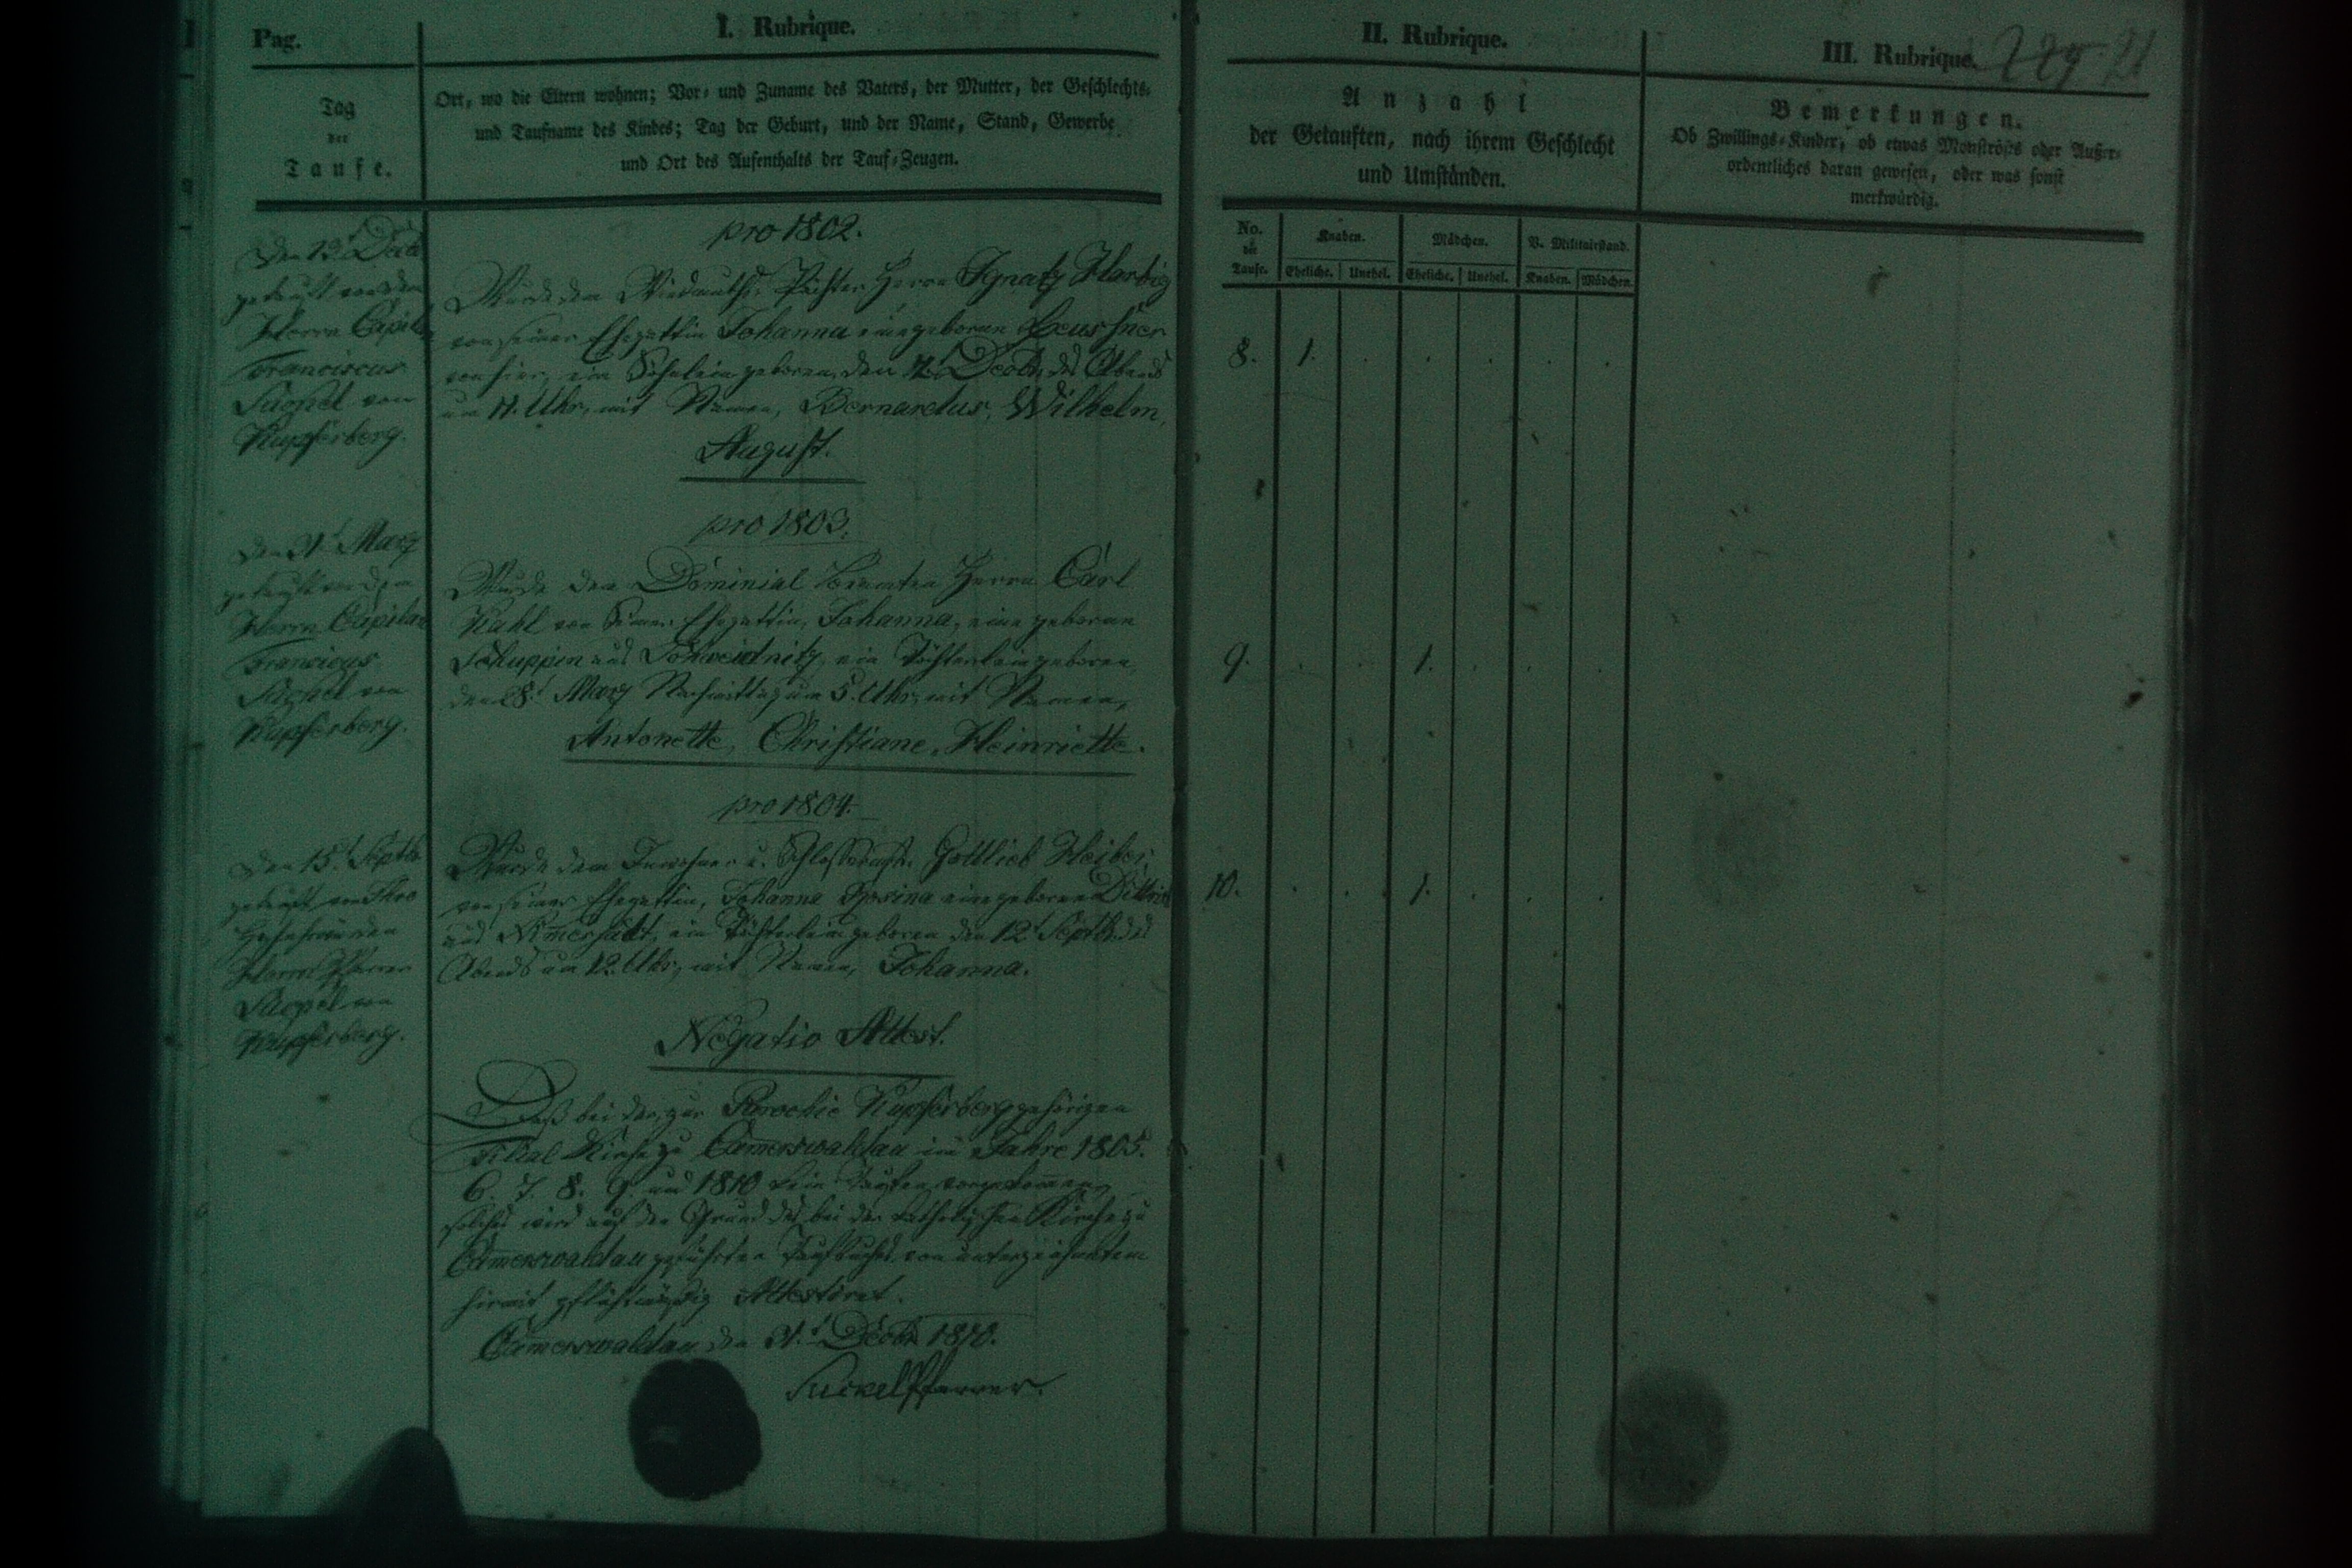 Pag.
I. Rubrique.
II. Rubrique.
III. Rubrique.
21
Tag
der
Taufe.
Ort, wo die Eltern wohnen; Vor- und Zuname des Vaters, der Mutter, der Geschlechts-
und Taufname des Kindes; Tag der Geburt, und der Name, Stand, Gewerbe
und Ort des Aufenthalts der Tauf-Zeugen.
Anzahl
der Getauften, nach ihrem Geschlecht
und Umständen.
Bemerkungen.
Ob Zwillings-Kinder, ob etwas Monströses oder Außer-
ordentliches daran gewesen, oder was sonst
merkwürdig.
No.
der
Taufe.
Knaben.
Mädchen.
V. Militairstand.
Eheliche. Unehel. Eheliche. Unehel. Knaben. Mädchen.
den 12t Decbr
getauft von dem
Herrn Capilan
Franciscus
von
Kupferberg.
pro 1802.
Wurde dem Wiedmuths Pächter Herrn Ignatz Harbig
von seiner Ehegattin Johanna eine geborene
von hier, ein Söhnlein geboren, den Decbr. des Abends
um 11. Uhr, mit Namen, Bernardus, Wilhelm,
August.
8. 1. . . . . .
den 31t Marz
getauft von dem
Herrn Capilan
Francicus
von
Kupferberg.
pro 1803.
Wurde dem Dominial Beamten Herrn Carl
Kahl von Seiner Ehegattin, Johanna, eine geborene
Schuppin aus Schweidnitz, ein Töchterlein geboren,
den 28t Marz Nachmittag um 5. Uhr, mit Namen,
Antonette, Christiane, Heinriette.
9. . . 1. . . .
den 15t Septb
getauft von Ihro
Hochehrwürden
Herrn Pfarrer
von
Kupferberg.
pro 1804.
Wurde dem Inwohner u. Gottlieb Heiber,
von seiner Ehegattin, Johanna Rosina eine geborene
aus Nimersatt, ein Töchterlein geboren den 12t Septb. des
Abends um 12. Uhr, mit Namen, Johanna.
10. . . 1. . . .
Negatio Attest.
Daß bei der, zur Parochie Kupferberg gehörigen
Filial Kirche zu Camerswaldau im Jahre 1805.
6. 7. 8. 9. und 1810 kein Taufen vorgekommen,
solches wird auf den Grund des bei der katholischen Kirche zu
Camerswaldau geführten Taufbuches, von unterzeichnetem
hiermit pflichtmäßig Attestiret.
Camerswaldau den 31t Decbr 1810.
Pfarrer.